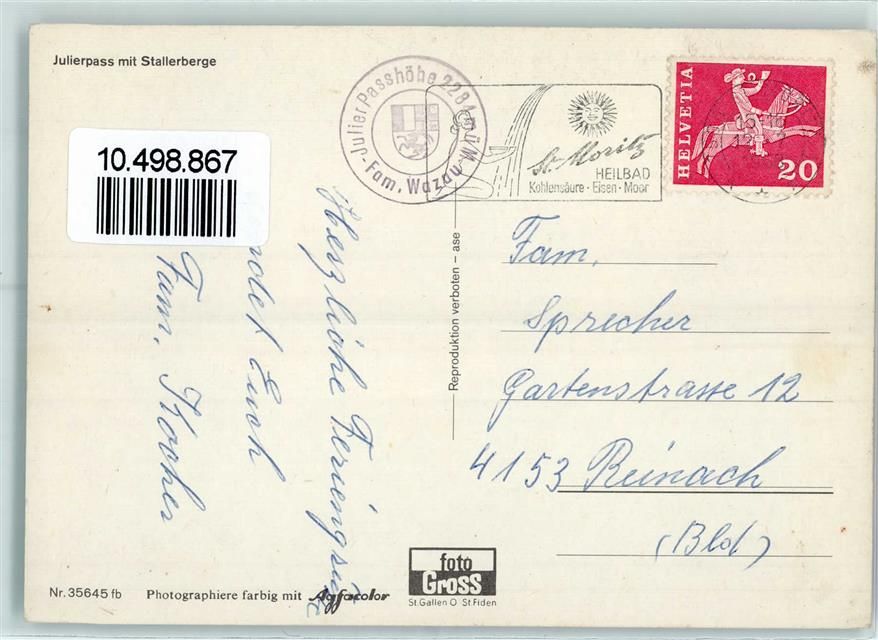 Julierpass mit Stallerberge
10.498.867
Julier Passhöhe 2284 m ü M
Fam. Wazau
St. Moritz
HEILBAD
Kohlensäure · Eisen · Moor
HELVETIA
20
Herzliche Feriengrüsse
Euch
Fam. Kocher
Reproduktion verboten – ase
Fam.
Sprecher
Gartenstrasse 12
4153 Reinach
(Bld)
foto
Gross
St.Gallen O St Fiden
Nr. 35645 fb
Photographiere farbig mit Agfacolor